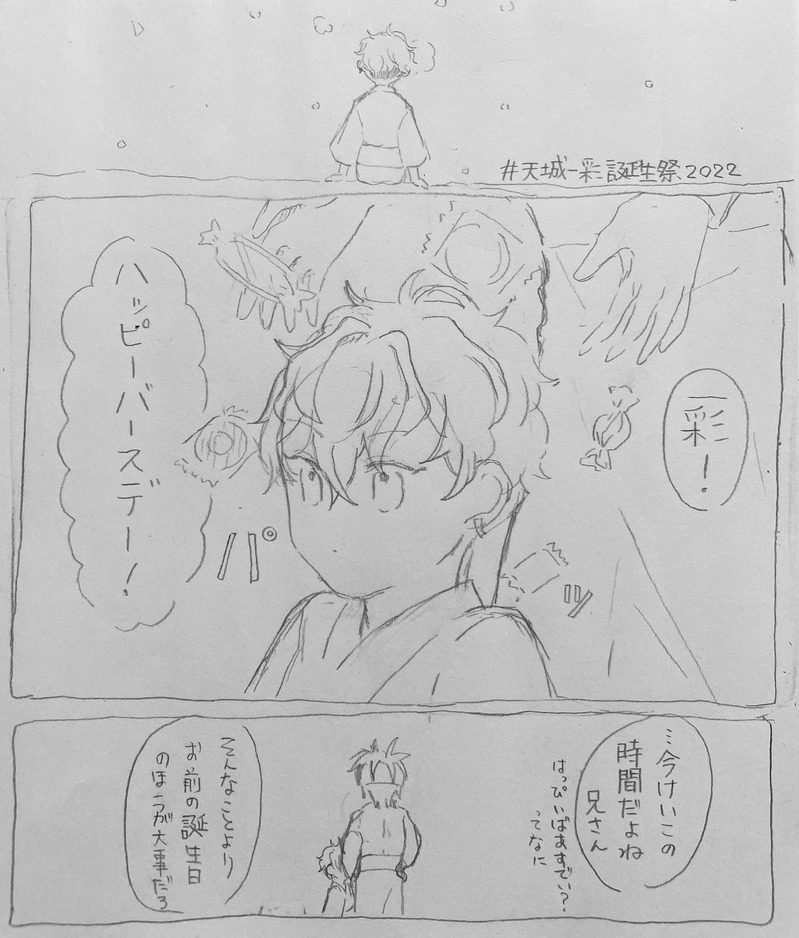 #天城一彩誕生祭2022
一彩!
ハッピーバースデー!
パッ
…今けいこの
時間だよね
兄さん
はっぴぃばあすでい?
ってなに
そんなことより
お前の誕生日
のほうが大事だろ